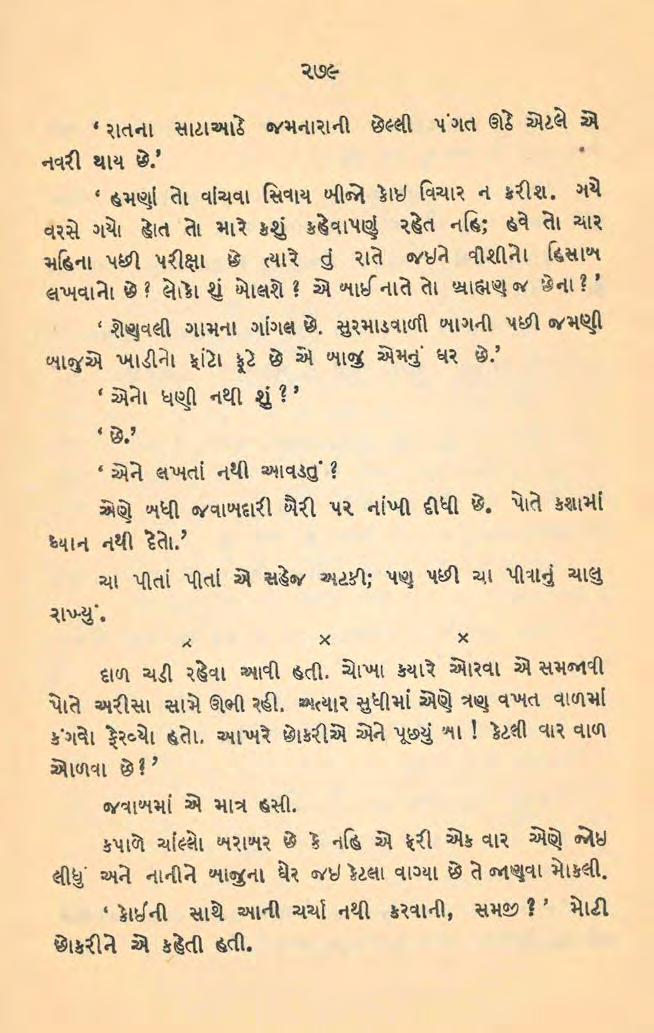 ૨૭૯
‘ રાતના સાટાઆઠે જમનારાની છેલ્લી પંગત ઊઠે એટલે એ
નવરી થાય છે.’
‘ હમણાં તો વાંચવા સિવાય બીજો કોઇ વિચાર ન કરીશ. ગયે
વરસે ગયો હોત તો મારે કશું કહેવાપણું રહેત નહિ; હવે તો ચાર
મહિના પછી પરીક્ષા છે ત્યારે તું રાતે જઇને વીશીનો હિસાબ
લખવાનો છે ? લોકો શું બોલશે ? એ બાઈ નાતે તો બ્રાહ્મણ જ છેના ? ’
‘ શેણુવલી ગામના ગાંગલ છે. સુરમાડવાળી બાગની પછી જમણી
બાજુએ ખાડીનો ફાંટો ફૂટે છે એ બાજુ એમનું ઘર છે.’
‘ એનો ધણી નથી શું ? ’
‘ છે.’
‘ એને લખતાં નથી આવડતું ?
એણે બધી જવાબદારી બૈરી પર નાંખી દીધી છે. પોતે કશામાં
ધ્યાન નથી દેતો.’
ચા પીતાં પીતાં એ સહેજ અટકી; પણ પછી ચા પીવાનું ચાલુ
રાખ્યું.
× × ×
દાળ ચડી રહેવા આવી હતી. ચોખા કયારે ઓરવા એ સમજાવી
પોતે અરીસા સામે ઊભી રહી. અત્યાર સુધીમાં એણે ત્રણ વખત વાળમાં
કંગવો ફેરવ્યો હતો. આખરે છોકરીએ એને પૂછયું બા ! કેટલી વાર વાળ
ઓળવા છે ? ’
જવાબમાં એ માત્ર હસી.
કપાળે ચાંલ્લો બરાબર છે કે નહિ એ ફરી એક વાર એણે જોઇ
લીધું અને નાનીને બાજુના ઘેર જઇ કેટલા વાગ્યા છે તે જાણવા મોકલી.
‘ કોઈની સાથે આની ચર્ચા નથી કરવાની, સમજી ? ’ મોટી
છોકરીને એ કહેતી હતી.